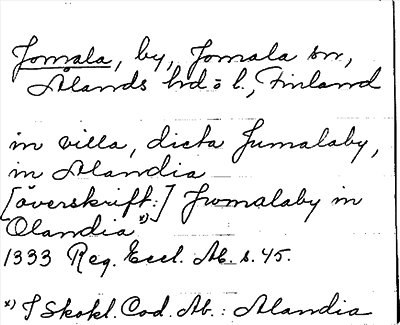 Jomala, by, Jomala sn,
Ålands hd o l., Finland
in villa, dicta Jumalaby,
in Alandia
[överskrift:] Jwmalaby in
Olandia x)
1333 Reg. Eccl. Ab. s. 45.
x) I Skokl. Cod. Ab.: Alandia